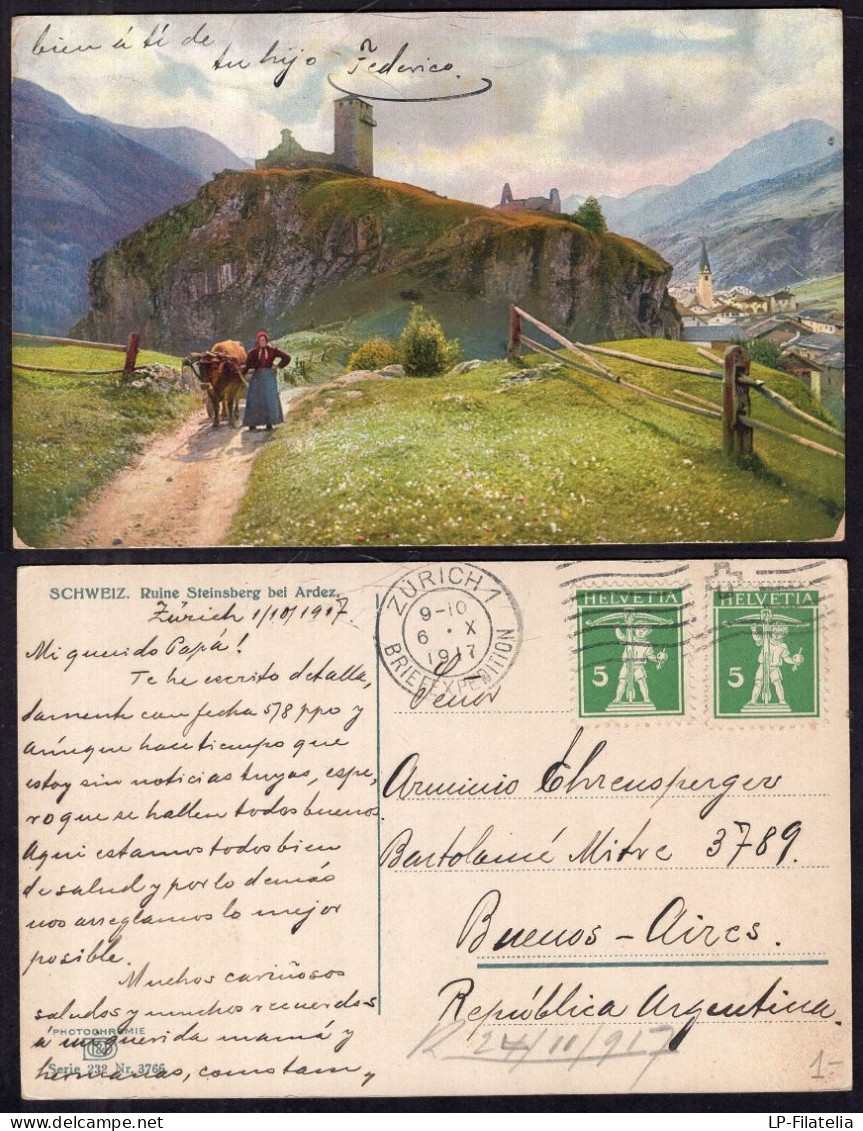 bien á tí de
tu hijo Federico.
SCHWEIZ. Ruine Steinsberg bei Ardez.
Zürich 1/10/1917.
Mi querido Papá!
Te he escrito detalla,
damente con fecha 5/8 ppo y
aúnque hace tiempo que
estoy sin noticias tuyas, espe,
ro que se hallen todos buenos.
Aqui estamos todos bien
de salud y por lo demás
nos arreglamos lo mejor
posible.
Muchos cariñosos
saludos y muchos recuerdos
á mi querida mamá y
hermanas, como tam,
PHOTOCHROMIE
Serie 232 Nr. 3766
ZÜRICH 1
9-10
6 · X
1917
BRIEFEXPEDITION
HELVETIA
5
HELVETIA
5
Señor
Arminio Ehrensperger
Bartolomé Mitre 3789.
Buenos-Aires.
República Argentina.
R 24/11/917
1.-
LP-Filatelia